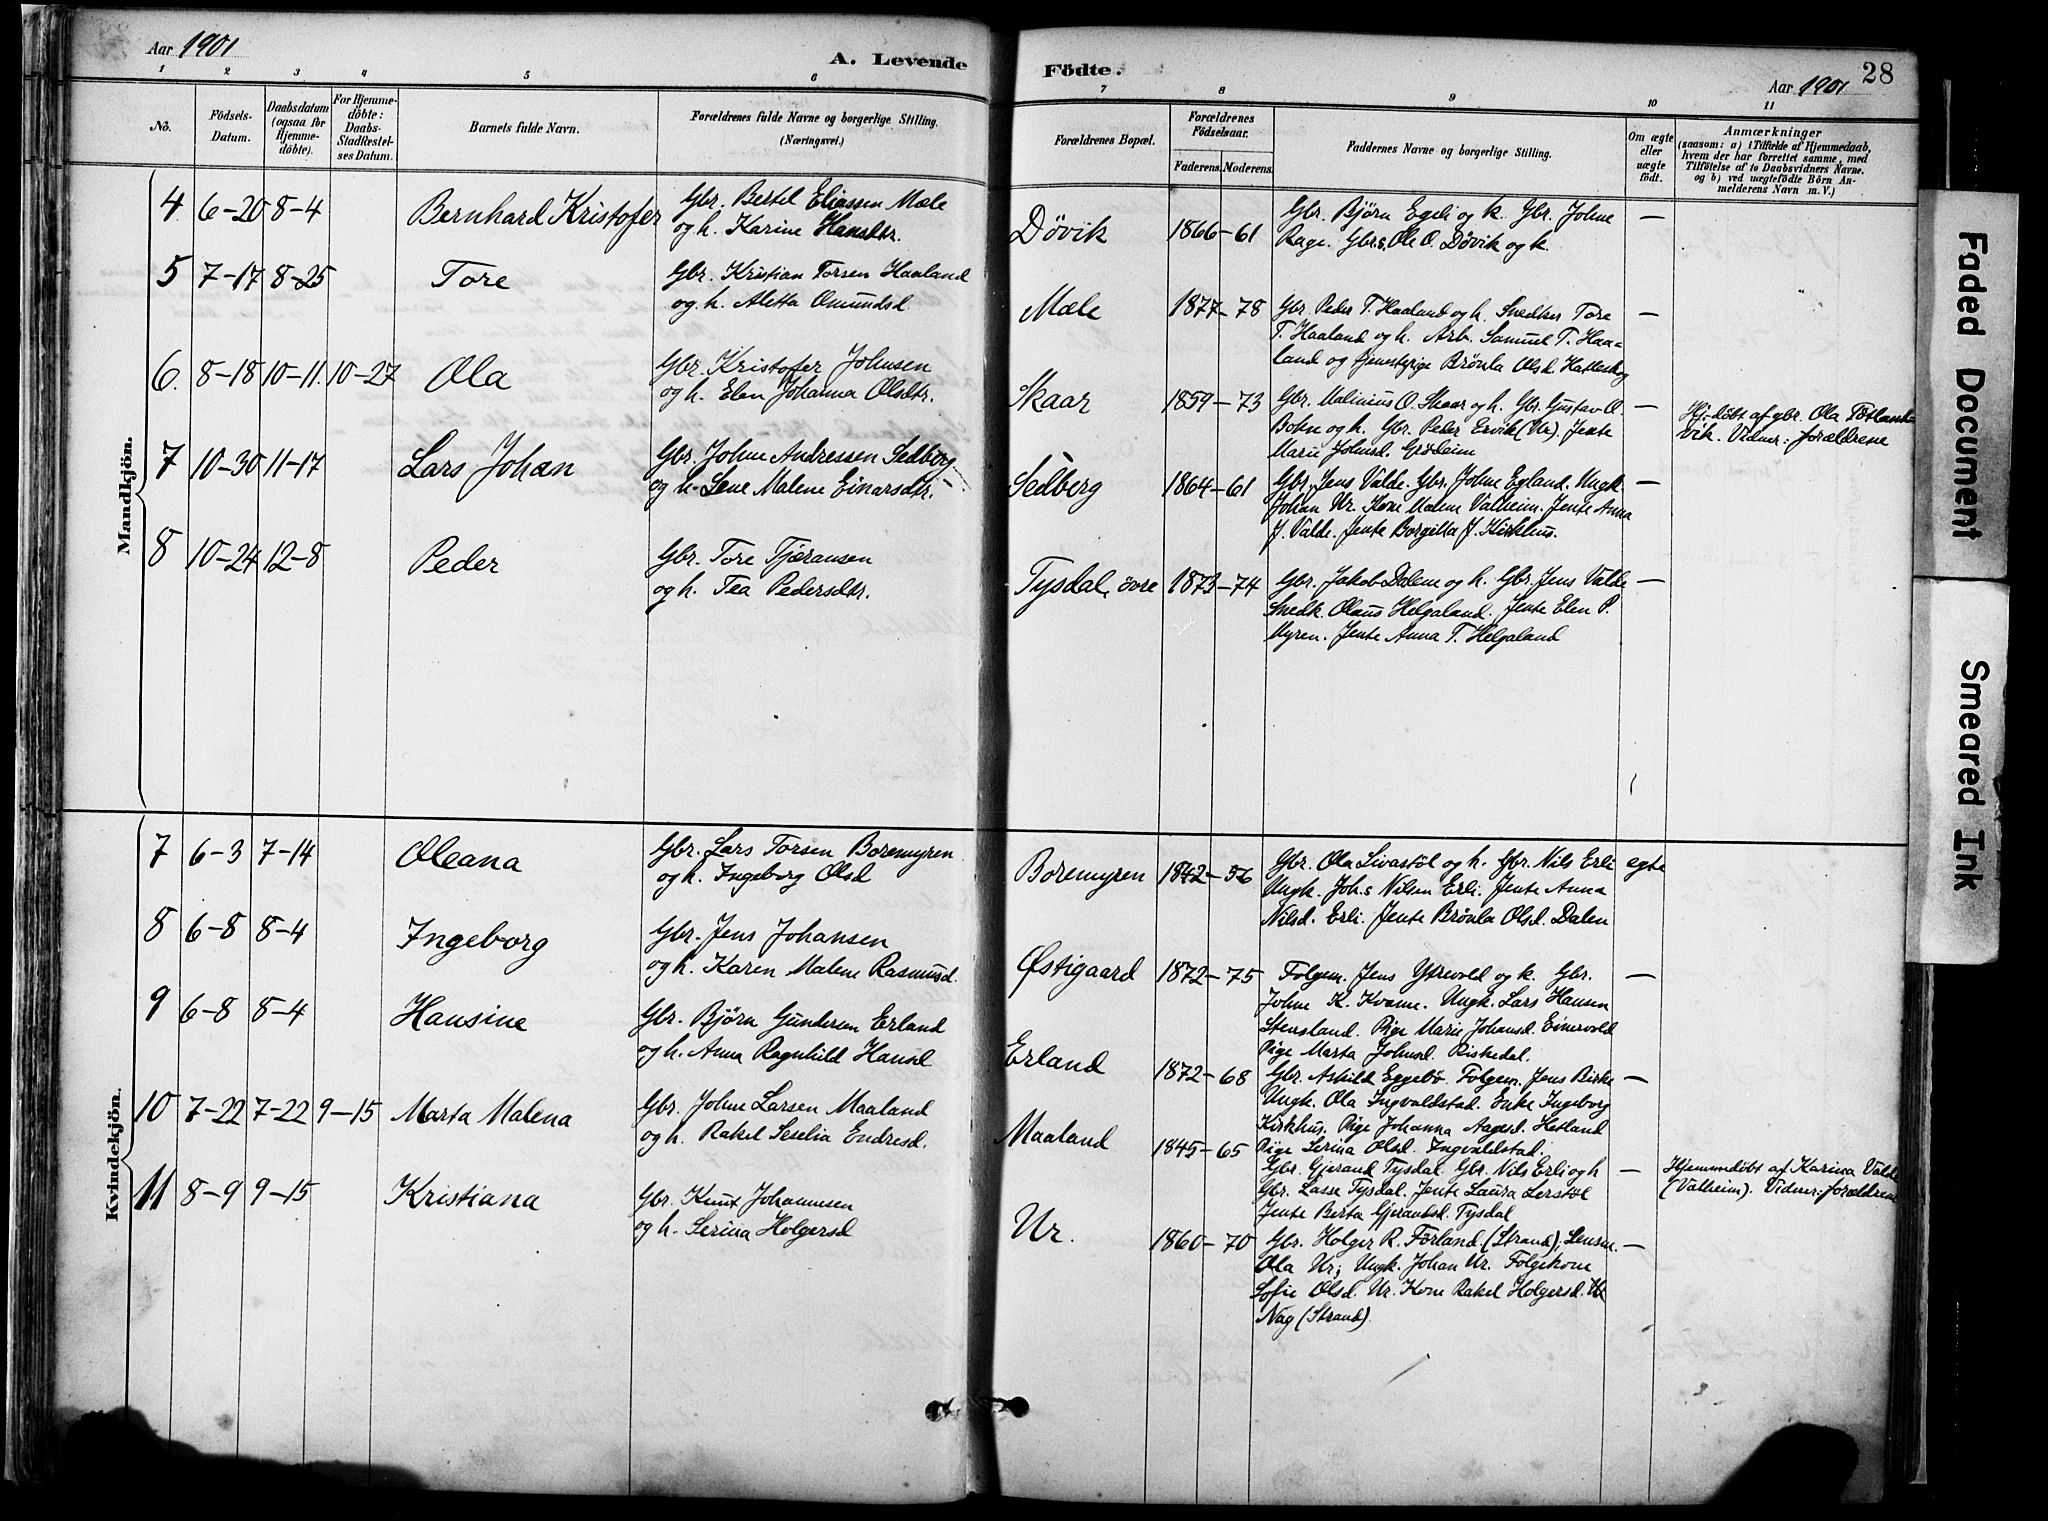 Aar 1901
A. Levende
1 2 3 4 5 6
No.
Födsels-
Datum.
Daabsdatum
(ogsaa for
Hjemme-
döbte).
For Hjemme-
döbte:
Daabs-
Stadfæstel-
ses Datum.
Barnets fulde Navn.
Forældrenes fulde Navne og borgerlige Stilling.
(Næringsvei.)
Mandkjön.
4 6-20 8-4 Bernhard Kristofer
Gbr. Bertel Eliassen Mæle
og h. Karine Hansdtr.
5 7-17 8-25 Tore
Gbr. Kristian Torsen Haaland
og h. Aletta Omundsd
6. 8-18 10-11. 10-27 Ola
Gbr. Kristofer Johnsen
og h. Elen Johanna Olsdtr.
7 10-30 11-17 Lars Johan
Gbr. Johne Andressen Sedberg
og h. Lene Malene Einarsdtr.
8 10-24 12-8 Peder
Gbr. Tore Tjæransen
og h. Tea Pedersdtr.
Kvindekjön.
7 6-3 7-14 Oleana
Gbr. Lars Torsen Boremyren
og h. Ingeborg Olsd
8 6-8 8-4 Ingeborg
Gbr. Jens Johansen
og h. Karen Malene Rasmusd.
9 6-8 8-4 Hansine
Gbr. Bjørn Gundersen Erland
og h. Anna Ragnhild Hansd
10 7-22 7-22 9-15 Marta Malena
Gbr. Johne Larsen Maaland
og h. Rakel Seselia Endresd.
11 8-9 9-15 Kristiana
Gbr. Knut Johannesen
og h. Serina Holgersd
Födte.
28
Aar 1901
7 8 9 10 11
Forældrenes Bopæl.
Forældrenes
Födselsaar.
Faderens. Moderens.
Faddernes Navne og borgerlige Stilling.
Om ægte
eller
uægte
födt.
Anmærkninger
(saasom: a) i Tilfælde af Hjemmedaab,
hvem der har forrettet samme, med
Tilföielse af to Daabsvidners Navne.
og b) ved uægtefödte Börn An-
melderens Navn m. V.)
Døvik 1866-61
Gbr. Bjørn Egeli og k. Gbr. Johne —
Rage. Gbr.s. Ole O. Døvik og k.
Mæle 1877-78
Gbr. Peder T. Haaland og h. Snedker Tore —
T. Haaland og h. Arb. Samuel T. Haa=
land og tjenestepige Brönla Olsd. Hatteskog
Skaar 1859-73
Gbr. Malinius O. Skaar og h. Gbr. Gustav O. —
Bohn og h. Gbr. Peder Ervik (Ur). Jente
Marie Johnsd. Grödeim
Hj-döbt af gbr. Ola Tötland=
vik. Vidner: forældrene
Sedberg 1864-61
Gbr. Jens Valde. Gbr. Johne Egland. Ungk —
Johan Ur. Kone Malene Valheim. Jente Anna
J. Valde. Jente Borgilla J. Kirkhus.
Tysdal, övre 1873-74
Gbr. Jakob Dalene og h. Gbr. Jens Valde —
Snedk. Olaus Helgaland. Jente Elen P.
Myren. Jente Anna T. Helgaland
Boremyren 1842-56
Gbr. Ola Livastöl og h. Gbr. Nils Erli egte
Ungk. Joh.s Nilsen Erli. Jente Anna
Nilsd. Erli. Jente Brönla Olsd. Dalen
Østigaard 1872-75
Folgem. Jens Ytrevold og k. Gbr. —
Johne K. Kvame. Ungk. Lars Hansen
Stensland. Pige Marie Johansd. Einervold
Pige Marta Johnsd. Riskedal.
Erland 1872-68
Gbr. Askild Eggebö. Folgem. Jens Birke —
Ungk. Ola Ingvaldstad. Enke Ingeborg
Kirkhus. Pige Johanna Aagesd. Hetland
Pige Serina Olsd. Ingvaldstad.
Maaland 1845-65
Gbr. Gjerand Tysdal. Gbr. Nils Erli og h —
Gbr. Lasse Tysdal. Jente Laura Lerstöl
Jente Berta Gjerandsd. Tysdal
Hjemmedöbt af Karina Valde
(Valheim). Vidner: forældrene
Ur. 1860-70
Gbr. Holger R. Förland (Strand); Lensm. —
Ola Ur; Ungk. Johan Ur. Folgekone
Sofie Olsd. Ur. Kone Rakel Holgersd.
Nag (Strand)
Faded Document
Smeared Ink